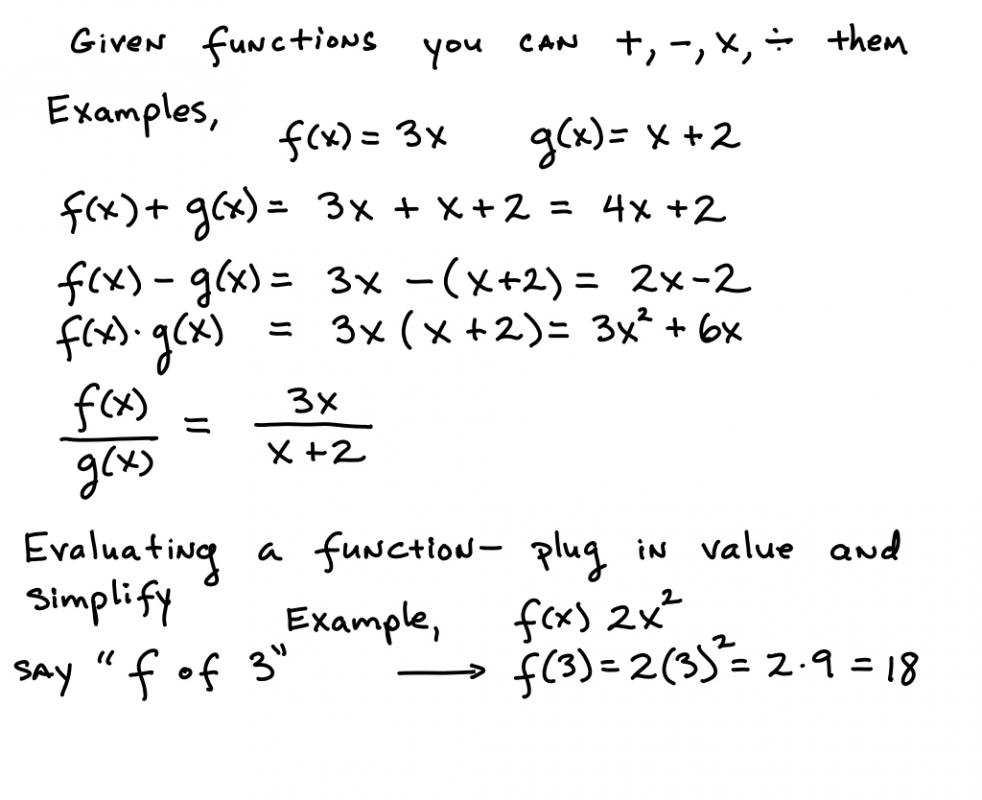 Given functions you can +, -, x, ÷ them
Examples,
f(x) = 3x g(x) = x + 2
f(x) + g(x) = 3x + x + 2 = 4x + 2
f(x) - g(x) = 3x - (x+2) = 2x - 2
f(x) · g(x) = 3x (x + 2) = 3x² + 6x
f(x)/g(x) = 3x/x + 2
Evaluating a function - plug in value and
simplify
Example, f(x) 2x²
say "f of 3" ⟶ f(3) = 2(3)² = 2·9 = 18